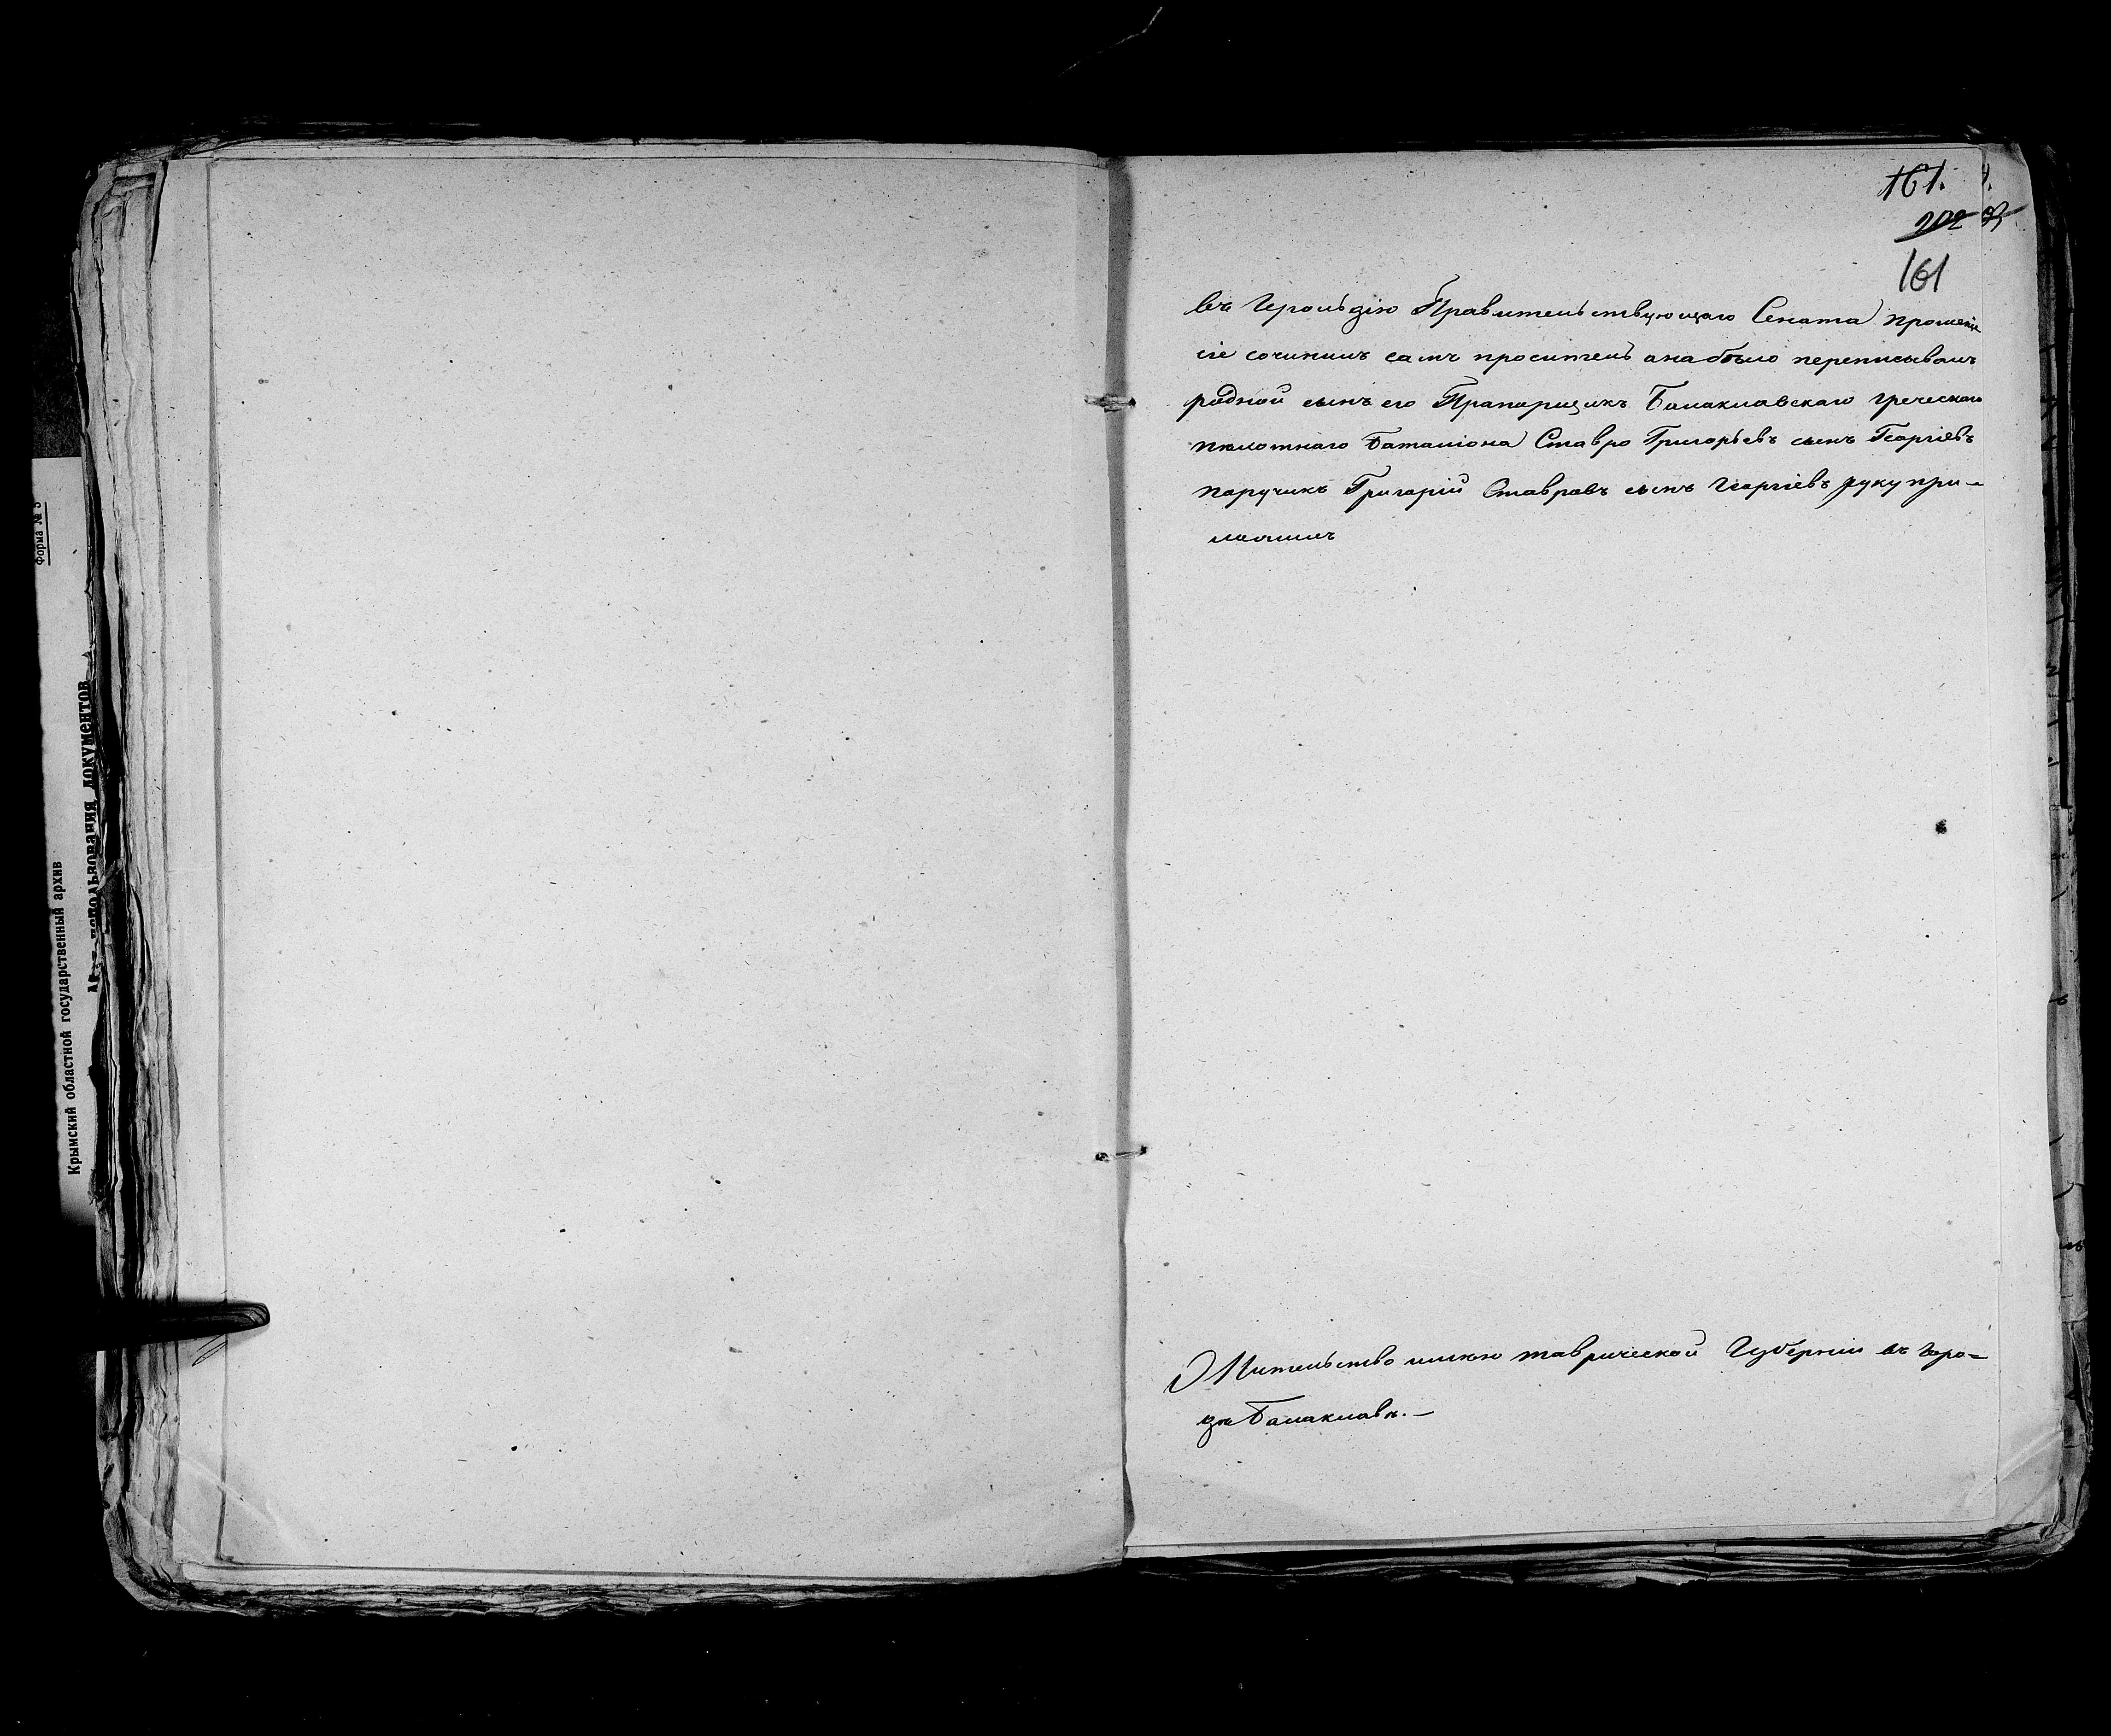 161.
202
161
въ Герольдію Правительствующаго Сената прошеніе
сіе сочинилъ самъ проситель а на бѣло переписывалъ
родной сынъ его Прапорщикъ Балаклавскаго греческаго
пѣхотнаго баталіона Ставро Григорьевъ сынъ Георгіевъ
поручикъ Григорій Ставровъ сынъ Георгіевъ руку при-
ложилъ
Жительство имѣю таврической Губерніи въ горо=
дѣ Балаклавѣ.—
Форма № 5
Крымский областной государственный архив
использования документов